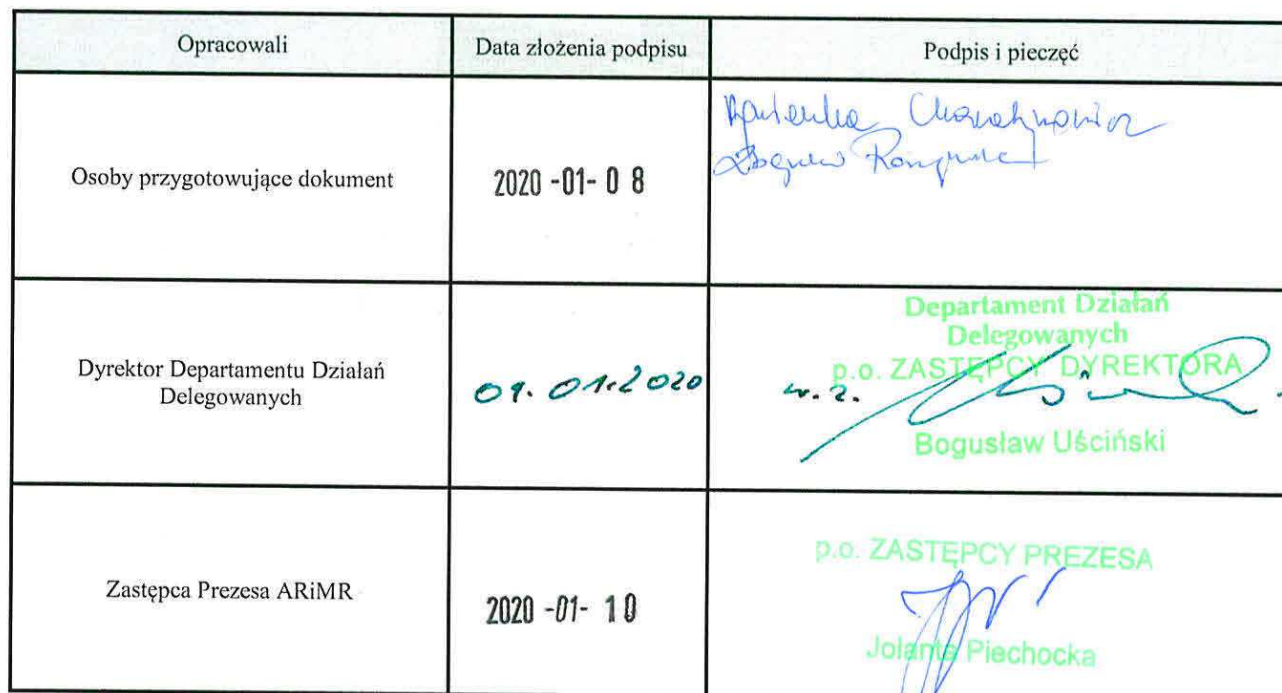 Opracowali Data złożenia podpisu Podpis i pieczęć
Osoby przygotowujące dokument 2020 -01- 0 8
Dyrektor Departamentu Działań
Delegowanych
01.2020
Departament Działań
Delegowanych
p.o. ZASTĘPCY DYREKTORA
w.z.
Bogusław Uściński
Zastępca Prezesa ARiMR 2020 -01- 1 0
p.o. ZASTĘPCY PREZESA
Jolanta Piechocka